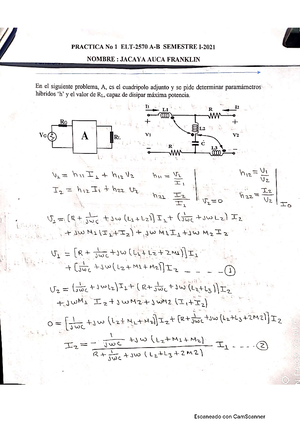 PRACTICA No 1 ELT-2570 A-B SEMESTRE I-2021
NOMBRE : JACAYA AUCA FRANKLIN
En el siguiente problema, A, es el cuadripolo adjunto y se pide determinar paramámetros
híbridos 'h' y el valor de RL, capaz de disipar máxima potencia.
RG
VG
A
RL
I1 L1 R I2
+ +
L2
V1 V2
C
R L3
V1 = h11 I1 + h12 V2
h11 = V1/I1
h12 = V1/V2
I2 = h12 I1 + h22 V2
h21 I2/I1 | V2=0
h22 = I2/V2 | I1=0
V1 = [R + 1/jwc + jw(L1+L2)] I1 + (1/jwc + jwL2) I2
+ jwM1 (I1+I2) + jwM1 I1 + jwM2 I2
V1 = [R + 1/jwc + jw(L1+L2+2M1)] I1
+ [1/jwc + jw(L2+M1+M2)] I2 --- (1)
V2 = (1/jwc + jwL2) I1 + (R + 1/jwc + jw(L2+L3)) I2
+ jwM1 I2 + jwM2 + jwM2 (I1+I2)
0 = [1/jwc + jw(L2+M1+M2)] I2 + [R + 1/jwc + jw(L2+L3+2M2)] I2
I2 = - (1/jwc + jw(L2+M1+M2)) / (R + 1/jwc + jw(L2+L3+2M2)) I1 --- (2)
Escaneado con CamScanner